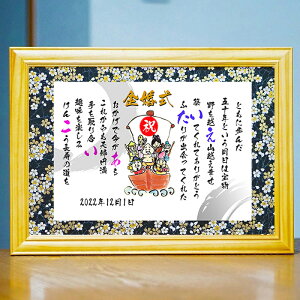 金婚式
祝
ともに歩んだ
五十年という月日は宝物
野を越え山越え幸せ
築いてくれてありがとう
ふたりが出会ってくれた
おかげで今がある
これからも夫婦円満
手を取り合い
趣味を楽しみ
けんこう長寿の道を
2022年12月1日